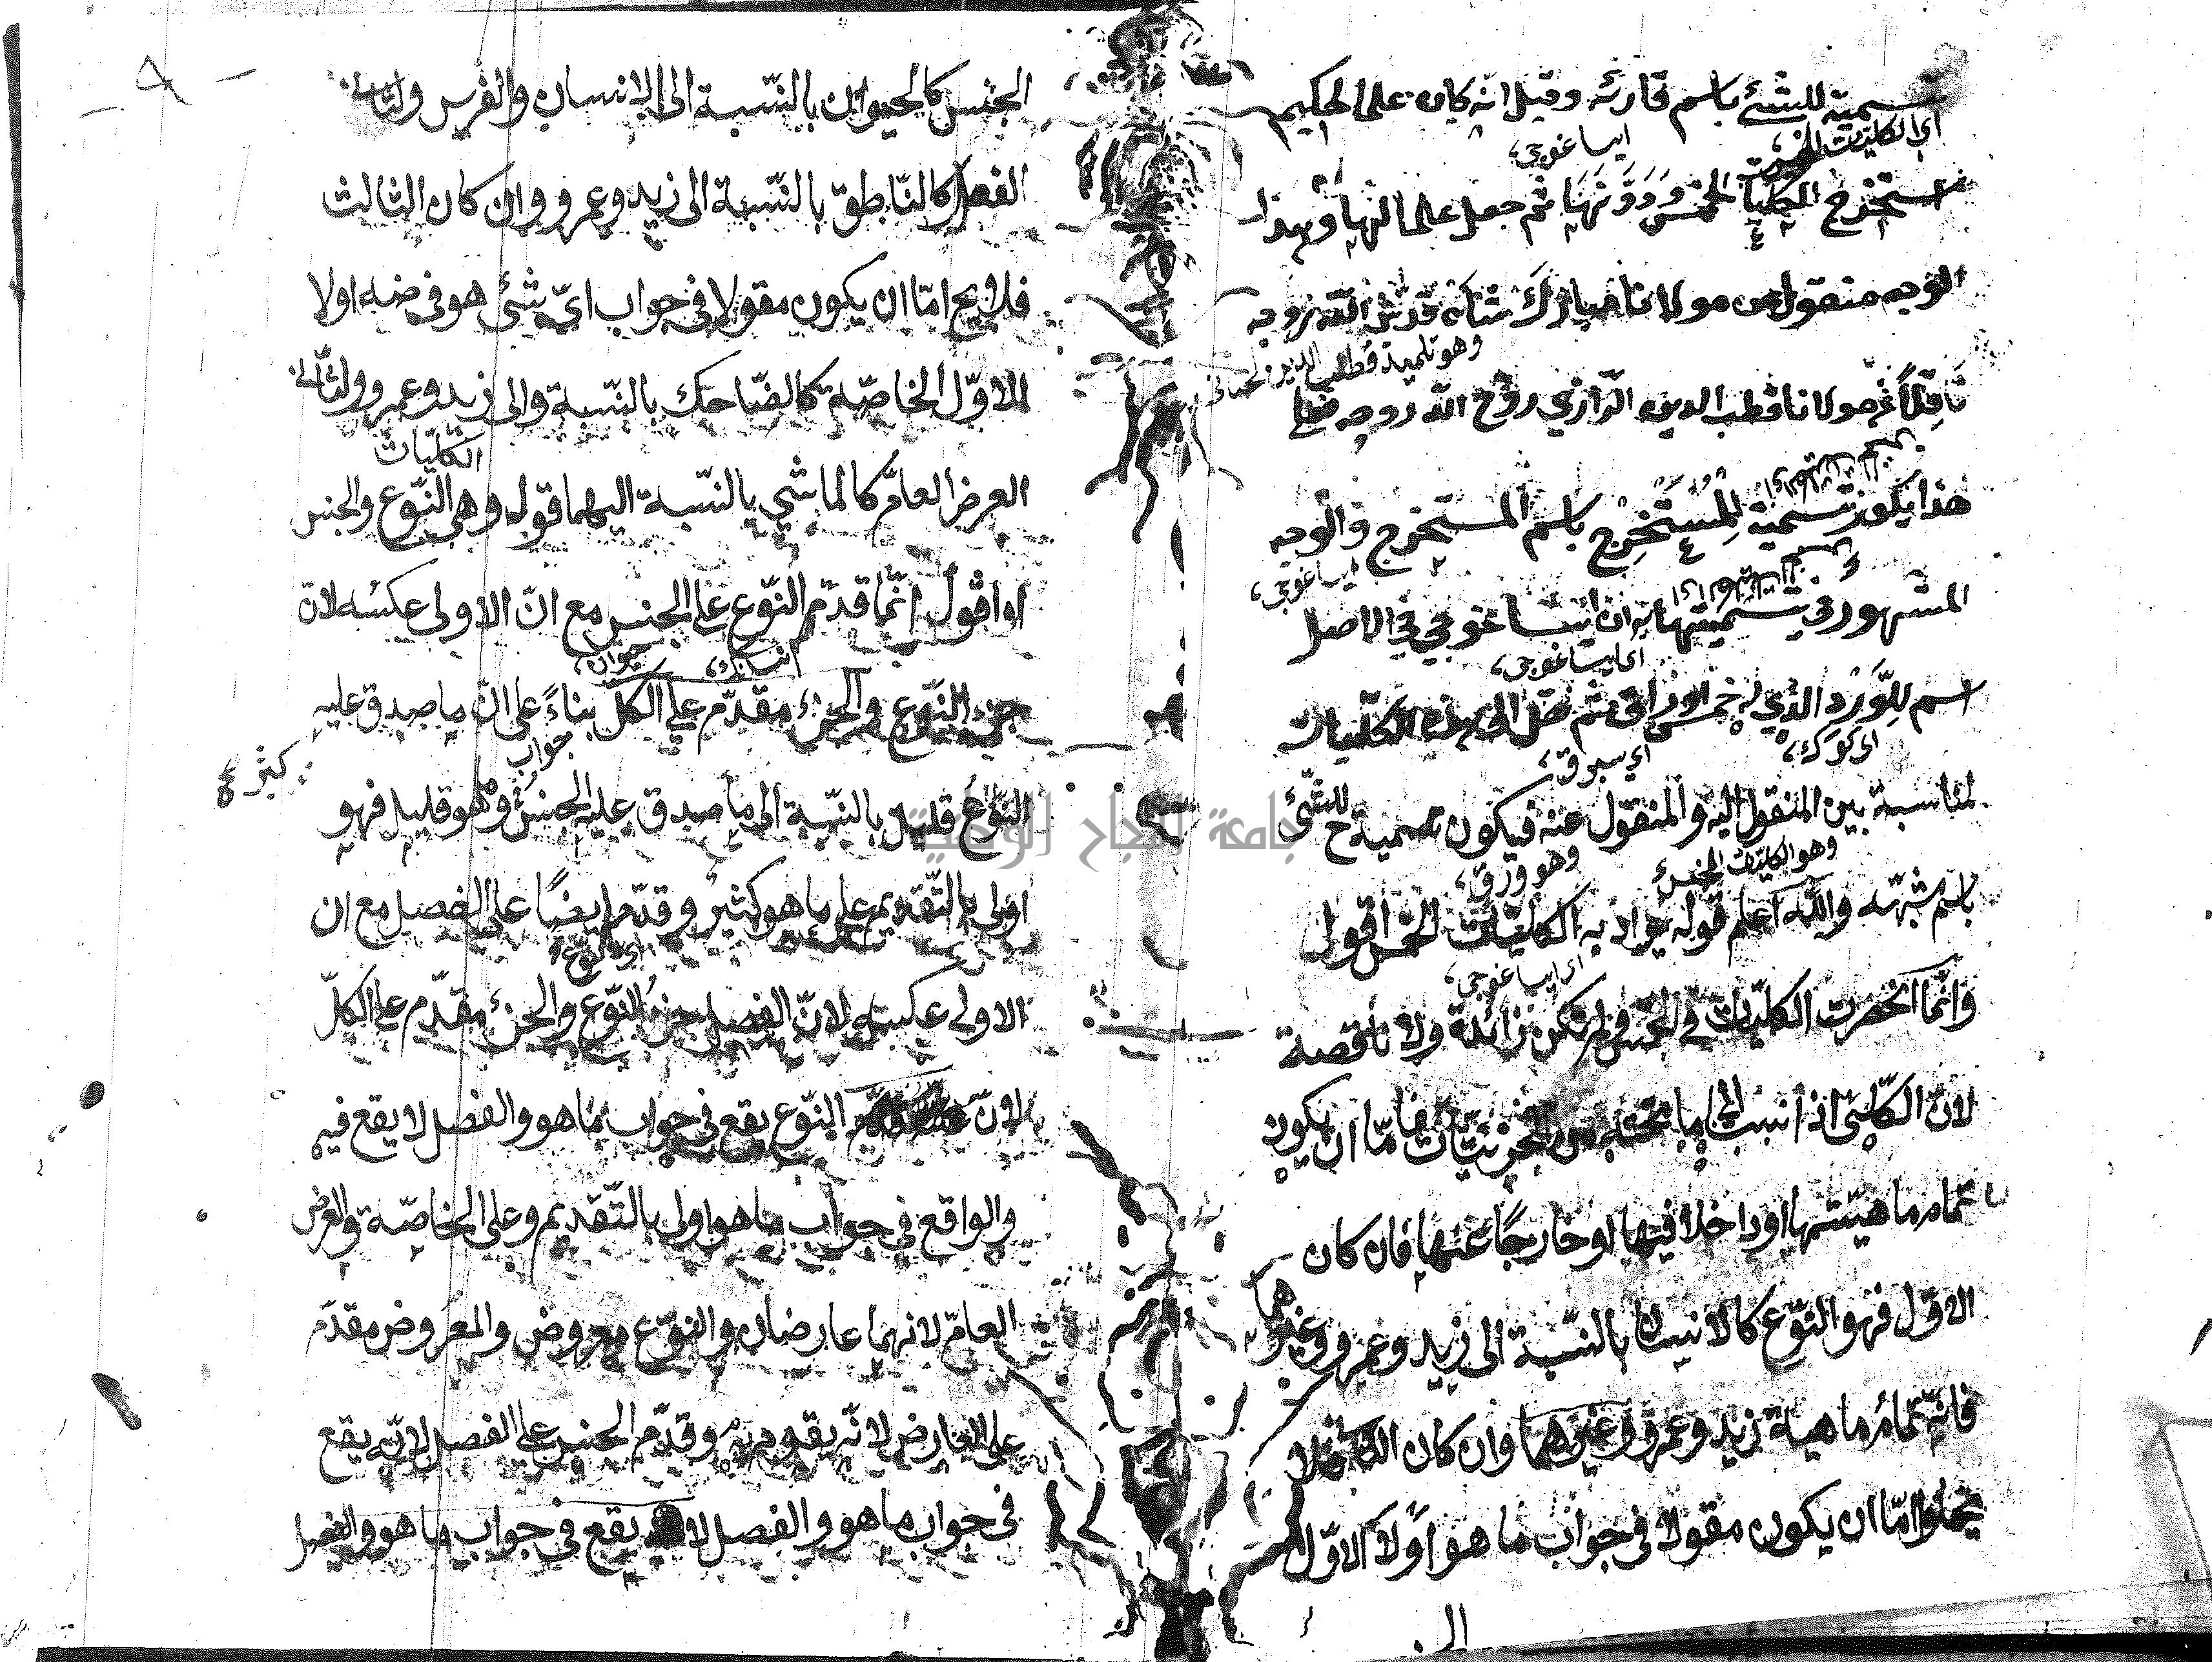 تسمية للشئ باسم قارئه وقيل انه كان علما لحكيم
اي الكليات الخمس
ايساغوجي
استخرج الكليات الخمس ودونها ثم جعل علما لها وهذا
الوجه منقول من مولانا مبارك شاه قدس الله روحه
وهو تلميذ قطب الدين
ناقلا عن مولانا قطب الدين الرازي روح الله روحه فعلى
هذا يكون تسمية للمستخرج باسم المستخرج والوجه
ايساغوجي
المشهور في تسميتها به ان ايساغوجي في الاصل
اي ايساغوجي
اسم للورد الذي له خمس اوراق ثم نقل الى هذه الكليات
لمناسبة بين المنقول اليه والمنقول عنه فيكون تسمية ح للشئ
وهو الكليات الخمس
وهو ورق
باسم شبهه والله اعلم قوله يراد به الكليات الخمس اقول
اي ايساغوجي
وانما انحصرت الكليات في الخمس فلم تكن زائدة ولا ناقصة
لان الكلي اذا نسب الى ما تحته من الجزئيات فاما ان يكون
تمام ماهيتها او داخلا فيها او خارجا عنها فان كان
الاول فهو النوع كالانسان بالنسبة الى زيد وعمرو وغيرهما
فانه تمام ماهية زيد وعمرو وغيرهما وان كان الثاني فلا
يخلوا اما ان يكون مقولا في جواب ما هو او لا الاول
الجنس كالحيوان بالنسبة الى الانسان والفرس والثاني
الفصل كالناطق بالنسبة الى زيد وعمرو وان كان الثالث
فلا يخ اما ان يكون مقولا في جواب اي شئ هو في ضه اولا
الاول الخاصة كالضاحك بالنسبة والى زيد وعمرو والثاني
الكليات
العرض العام كالماشي بالنسبة اليهما قوله وهي النوع والجنس
اه اقول انما قدم النوع على الجنس مع ان الاولى عكسه لان
حيوان
جزء النوع والجزء مقدم على الكل بناء على ان ما صدق عليه
جواب
النوع قليل بالنسبة الى ما صدق عليه الجنس وما هو قليل فهو
كثير
اولى بالتقديم على ما هو كثير وقدم ايضا على الفصل مع ان
اي النوع
الاولى عكسه لان الفصل جزء النوع والجزء مقدم على الكل
لان النوع يقع في جواب ما هو والفصل لا يقع فيه
والواقع في جواب ما هو اولى بالتقديم وعلى الخاصة والعرض
العام لانهما عارضان والنوع معروض والمعروض مقدم
على العارض لانه يقوم به وقدم الجنس على الفصل لانه يقع
في جواب ما هو والفصل لا يقع في جواب ما هو والفصل
جامعة النجاح الوطنية